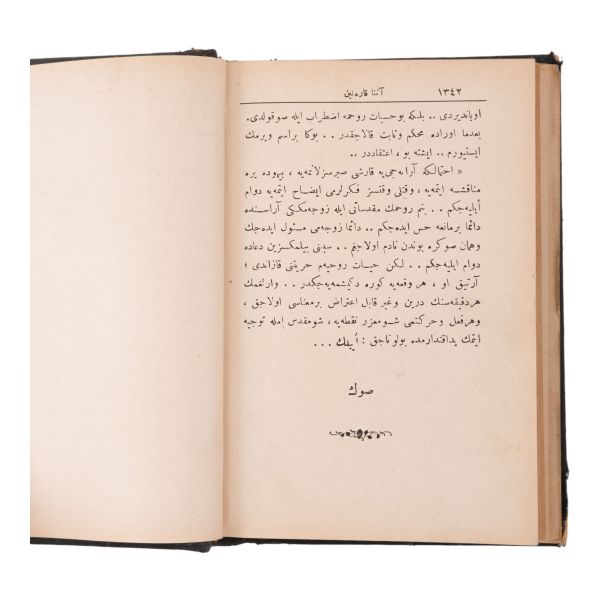 ١٣٤٢ آننا قاره‌نين
اوياندیردی .. بلکه بوحسیات روحمه اضطراب ایله صوقولدی.
بعدما اوراده محکم وثابت قالاجقدر .. بوکا براسم ویرمك
ایستیورم .. ایشته بو ، اعتقاددر ..
« احتمالکه آرابه‌جی‌یه قارشی صبرسزلانمه‌یه ، بیهوده یره
مناقشه ایتمه‌یه ، وقتلی وقتسز فکرلرمی ایضاح ایتمه‌یه دوام
ایلیه‌جکم .. بنم روحمك مقدساتی ایله زوجه‌مکنکی آراسنده
دائما برمانعه حس ایده‌جکم .. دائما زوجه‌می مسئول ایده‌جك
وهمان صوکره بوندن نادم اولاجغم .. سببنی بیلمکسزین دعاده
دوام ایلیه‌جکم .. لکن حیات روحیه‌م حریتنی قازاندی ؛
آرتیق او ، هر وقعه‌یه کوره دکیشمه‌یه‌جکدر .. وارلغمك
هردقیقه‌سنك درین وغیر قابل اعتراض برمعناسی اولاجق ،
وهرفعل وحرکتمی شومعزز نقطه‌یه ، شومقدس امله توجیه
ایتمك یداقتدارمده بولوناجق : اُییلك ...
صوك